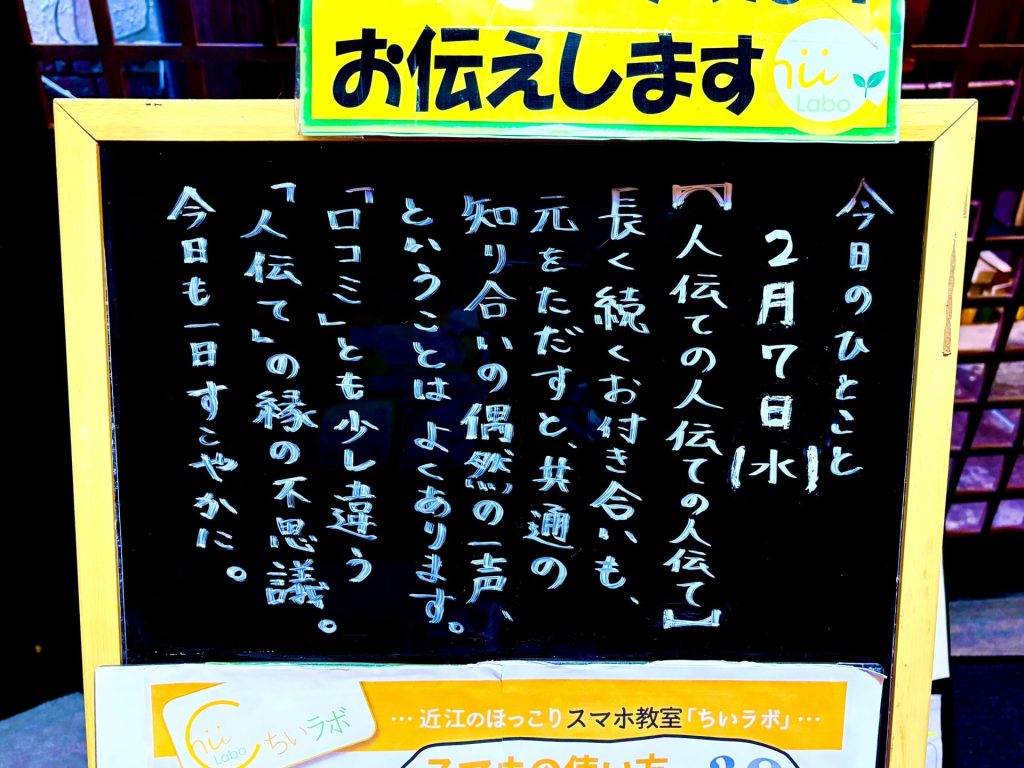 お伝えします
hii
Labo
今日のひとこと
2月7日
(水)
【人伝ての人伝ての人伝て】
長く続くお付き合いも、
元をただすと、共通の
知り合いの偶然の一声、
ということはよくあります。
「口コミ」とも少し違う
「人伝て」の縁の不思議。
今日も一日すこやかに。
Chii
Labo
ちいラボ
…近江のほっこりスマホ教室「ちいラボ」…
スマホの使い方